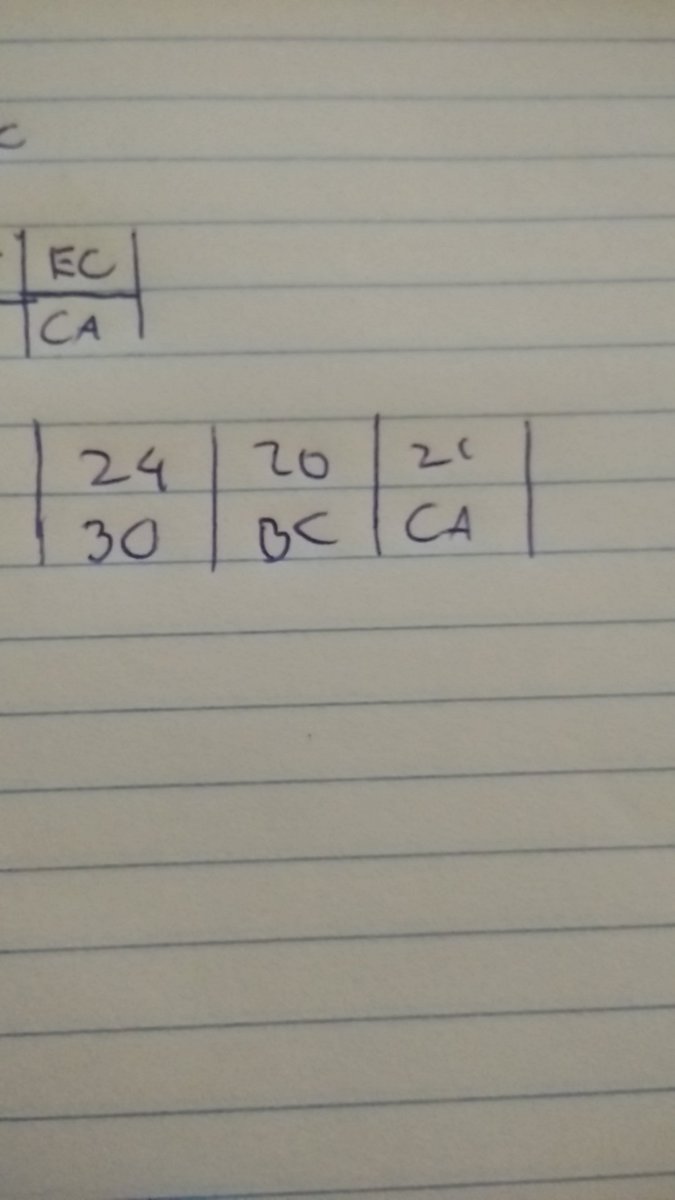 C
EC
CA
24 20 2C
30 BC CA